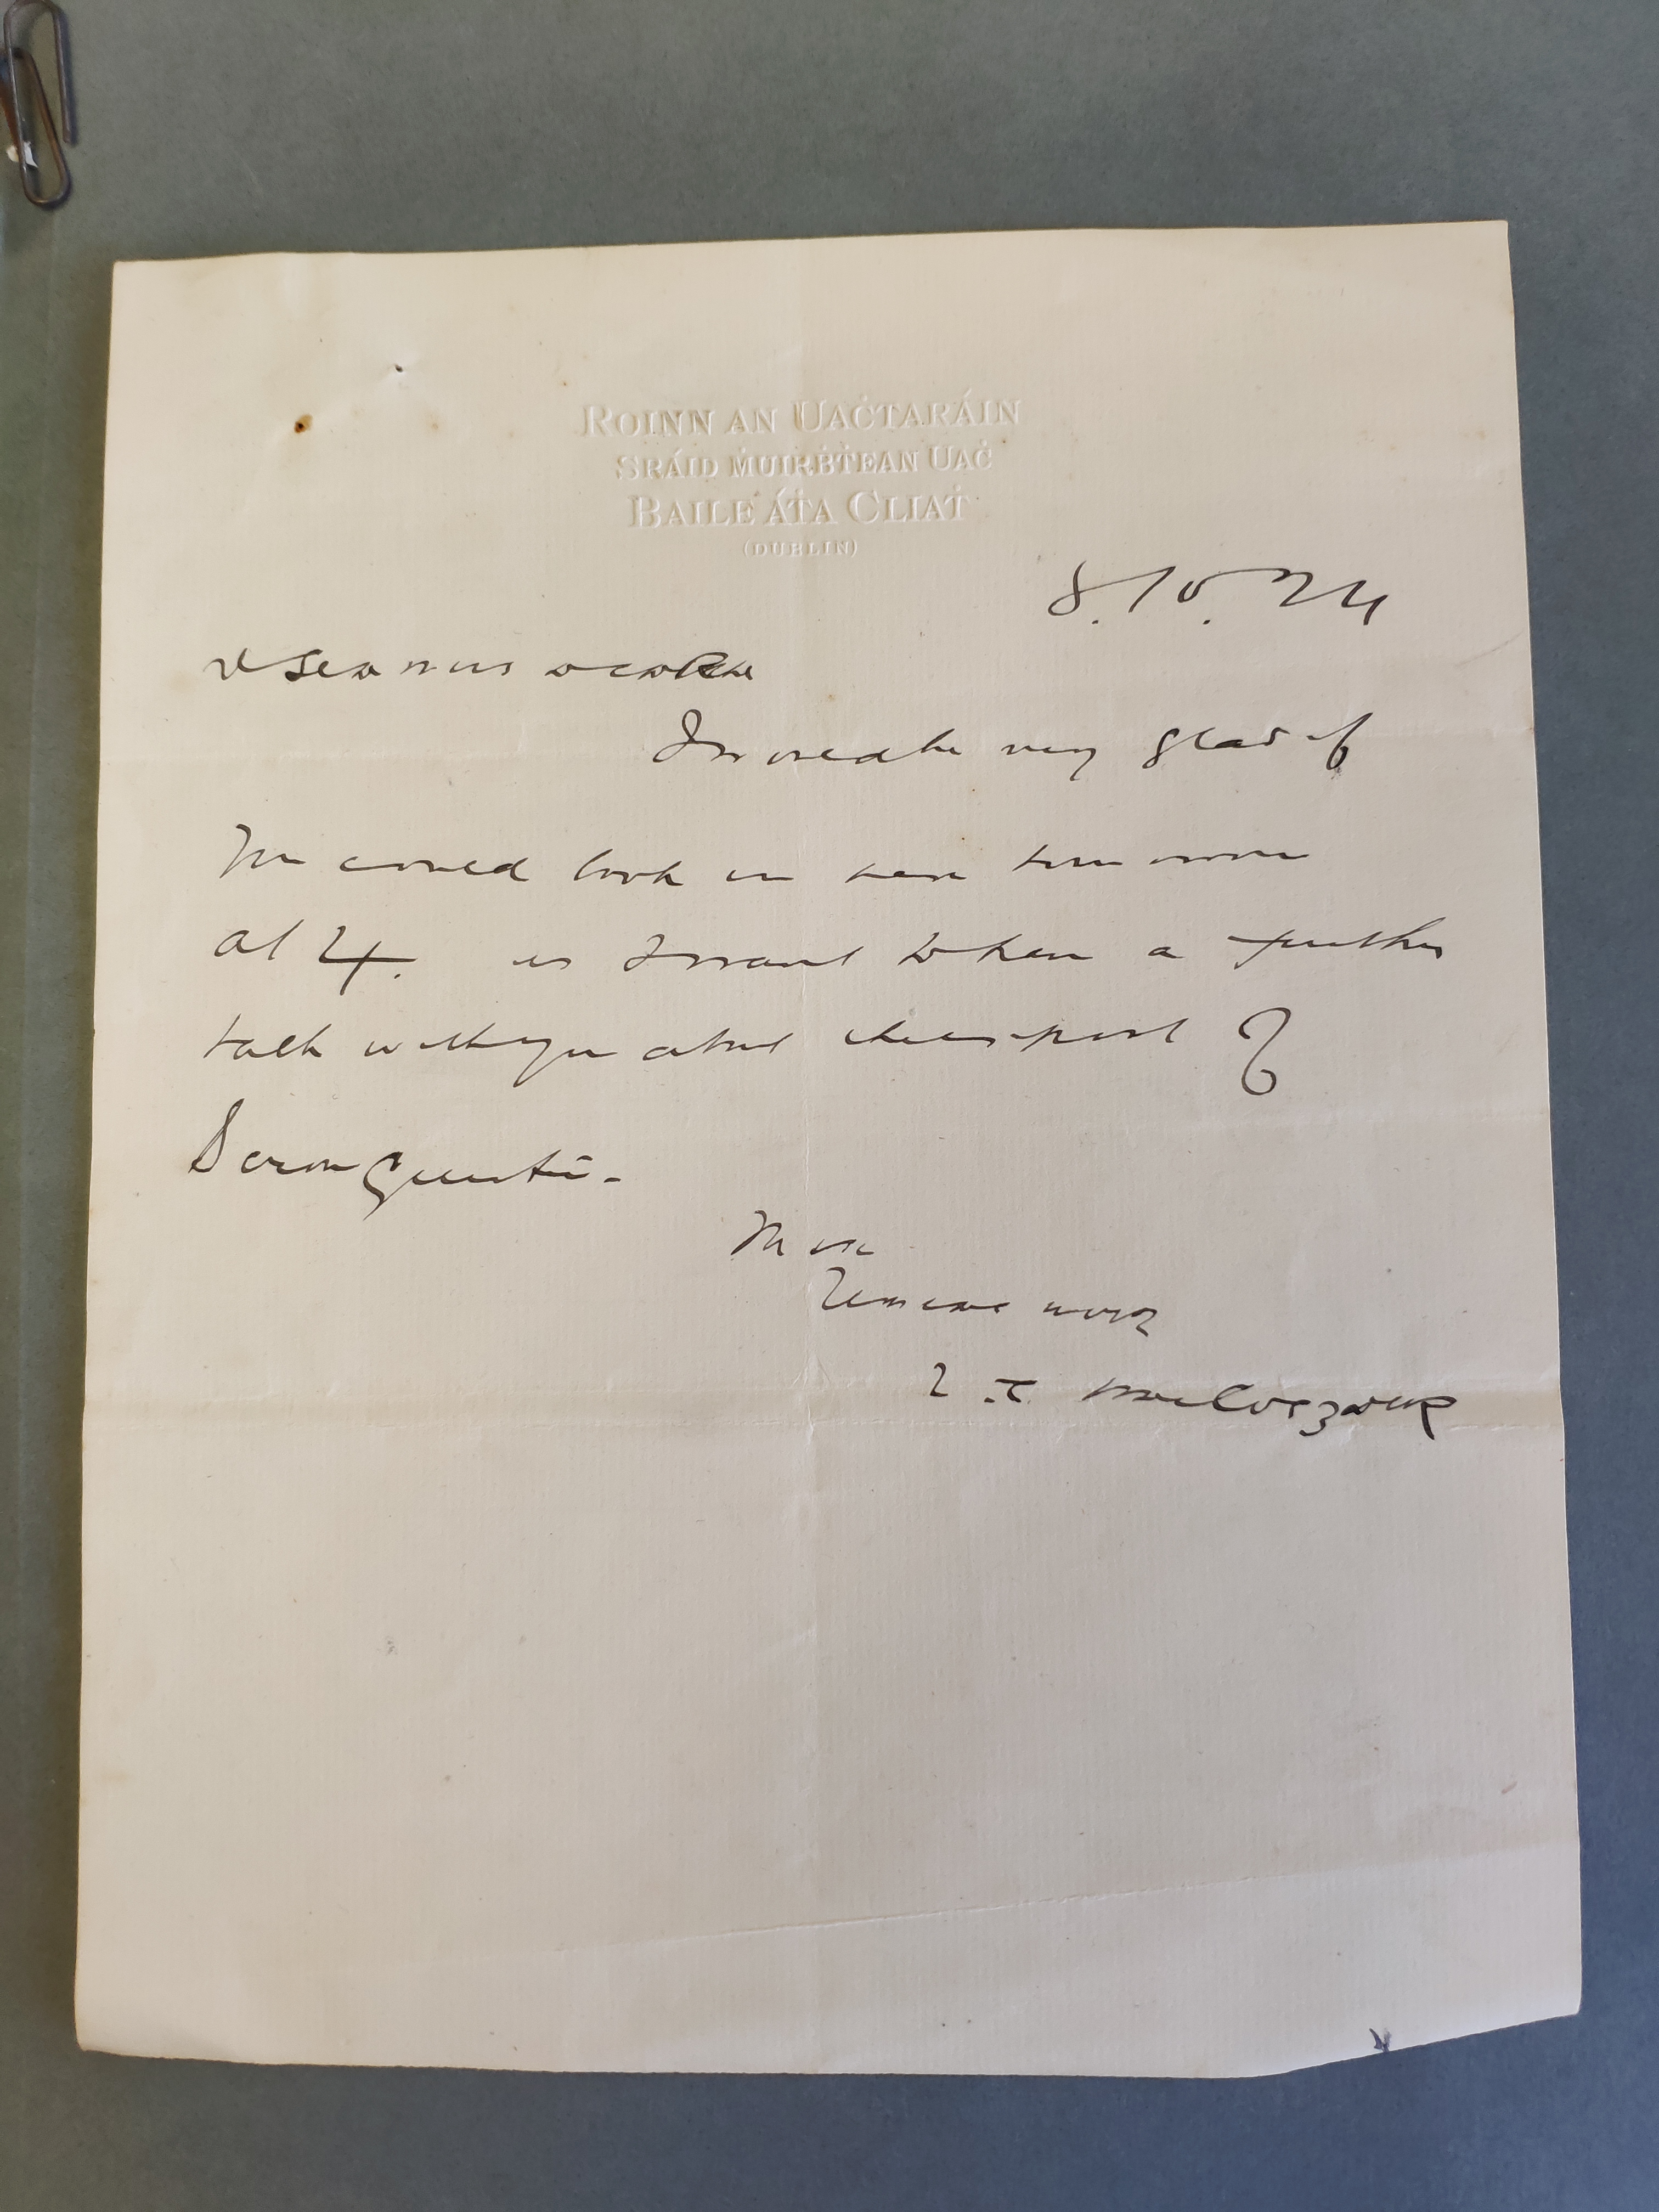 ROINN AN UAĊTARÁIN
SRÁID ṀUIRḂṪEAN UAĊ
BAILE ÁṪA CLIAṪ
(DUBLIN)
8.10.24
A Seamuis a cara
I would be very glad if
you could look in here tomorrow
at 4. as I want to have a further
talk with you about of
Question -
Mise
L.T. MacCosgair